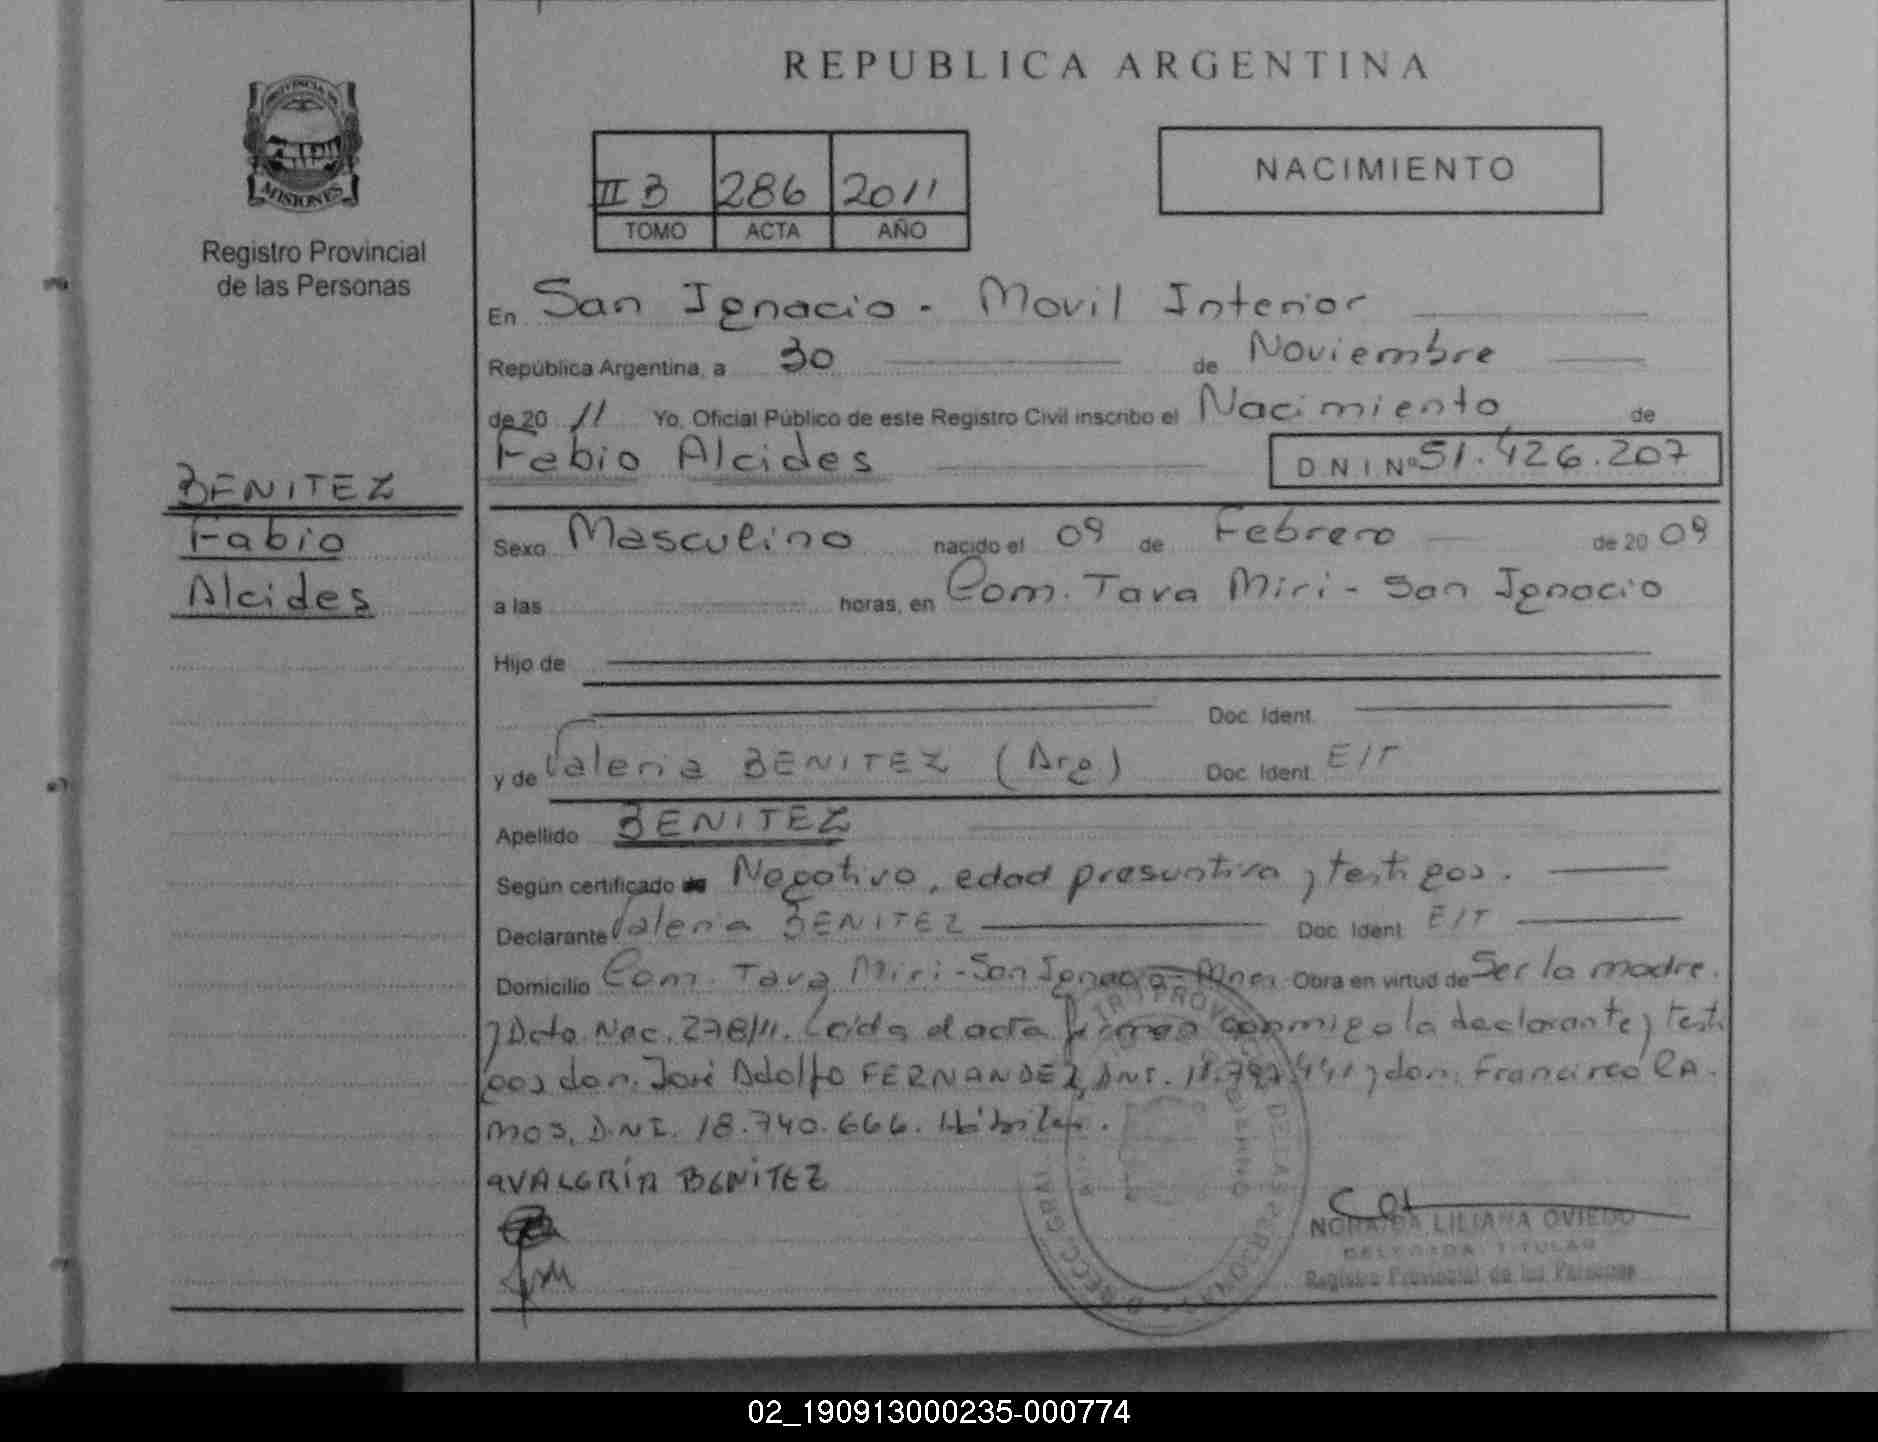 REPUBLICA ARGENTINA
PROVINCIA DE
MISIONES
Registro Provincial
de las Personas
II B 286 2011
TOMO ACTA AÑO
NACIMIENTO
En San Ignacio - Movil Interior
República Argentina, a 30 de Noviembre
de 20 11 Yo, Oficial Público de este Registro Civil inscribo el Nacimiento de
Fabio Alcides DNI Nº 51.426.207
BENITEZ
Fabio
Alcides
Sexo Masculino nacido el 09 de Febrero de 20 09
a las horas, en Com. Tava Miri - San Ignacio
Hijo de
Doc. Ident.
y de Valeria BENITEZ (Arg) Doc. Ident. E/T
Apellido BENITEZ
Según certificado Negativo, edad presuntiva y testigos.
Declarante Valeria BENITEZ Doc. Ident. E/T
Domicilio Com. Tava Miri - San Ignacio - Mnes Obra en virtud de Ser la madre
y Dcto. Nac. 278/11. Leida el acta firman conmigo la declarante y testi
gos don. José Adolfo FERNANDEZ, DNI. y don. Francisco RA
MOS, D.N.I. 18.740.666. Hábiles.
VALERIA BENITEZ
LILIANA OVIEDO
DELEGADA TITULAR
Registro Provincial de las Personas
02_190913000235-000774